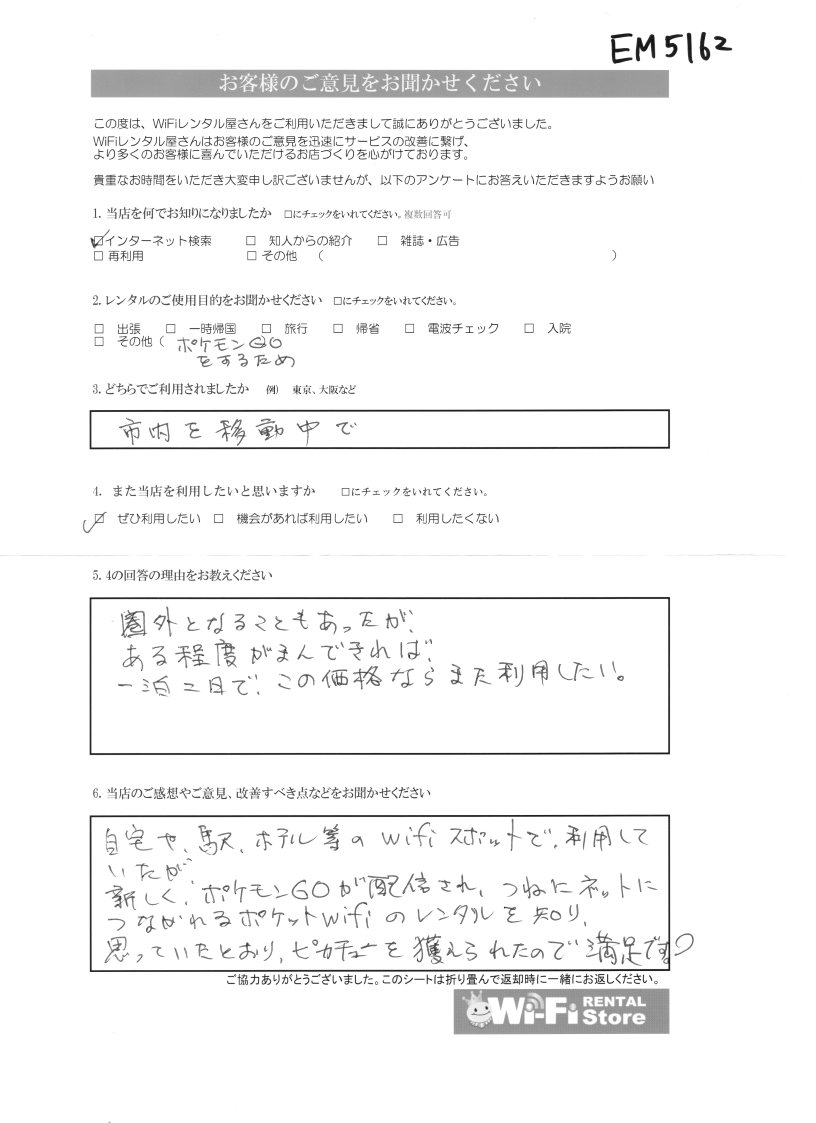 EM5162
お客様のご意見をお聞かせください
この度は、WiFiレンタル屋さんをご利用いただきまして誠にありがとうございました。
WiFiレンタル屋さんはお客様のご意見を迅速にサービスの改善に繋げ、
より多くのお客様に喜んでいただけるお店づくりを心がけております。
貴重なお時間をいただき大変申し訳ございませんが、以下のアンケートにお答えいただきますようお願い
1. 当店を何でお知りになりましたか □にチェックをいれてください。複数回答可
☑インターネット検索 □ 知人からの紹介 □ 雑誌・広告
□ 再利用 □ その他 ( )
2. レンタルのご使用目的をお聞かせください □にチェックをいれてください。
□ 出張 □ 一時帰国 □ 旅行 □ 帰省 □ 電波チェック □ 入院
□ その他 ( ポケモンGO
をするため
3. どちらでご利用されましたか 例) 東京、大阪など
市内を移動中で
4. また当店を利用したいと思いますか □にチェックをいれてください。
☑ ぜひ利用したい □ 機会があれば利用したい □ 利用したくない
5. 4の回答の理由をお教えください
圏外となることもあったが、
ある程度がまんできれば、
一泊二日で、この価格ならまた利用したい。
6. 当店のご感想やご意見、改善すべき点などをお聞かせください
自宅や、駅、ホテル等のwifiスポットで、利用して
いたが
新しく、ポケモンGOが配信され、つねにネットに
つながれるポケットwifiのレンタルを知り、
思っていたとおり、ピカチューを獲えられたので満足です♡
ご協力ありがとうございました。このシートは折り畳んで返却時に一緒にお返しください。
Wi-Fi RENTAL Store